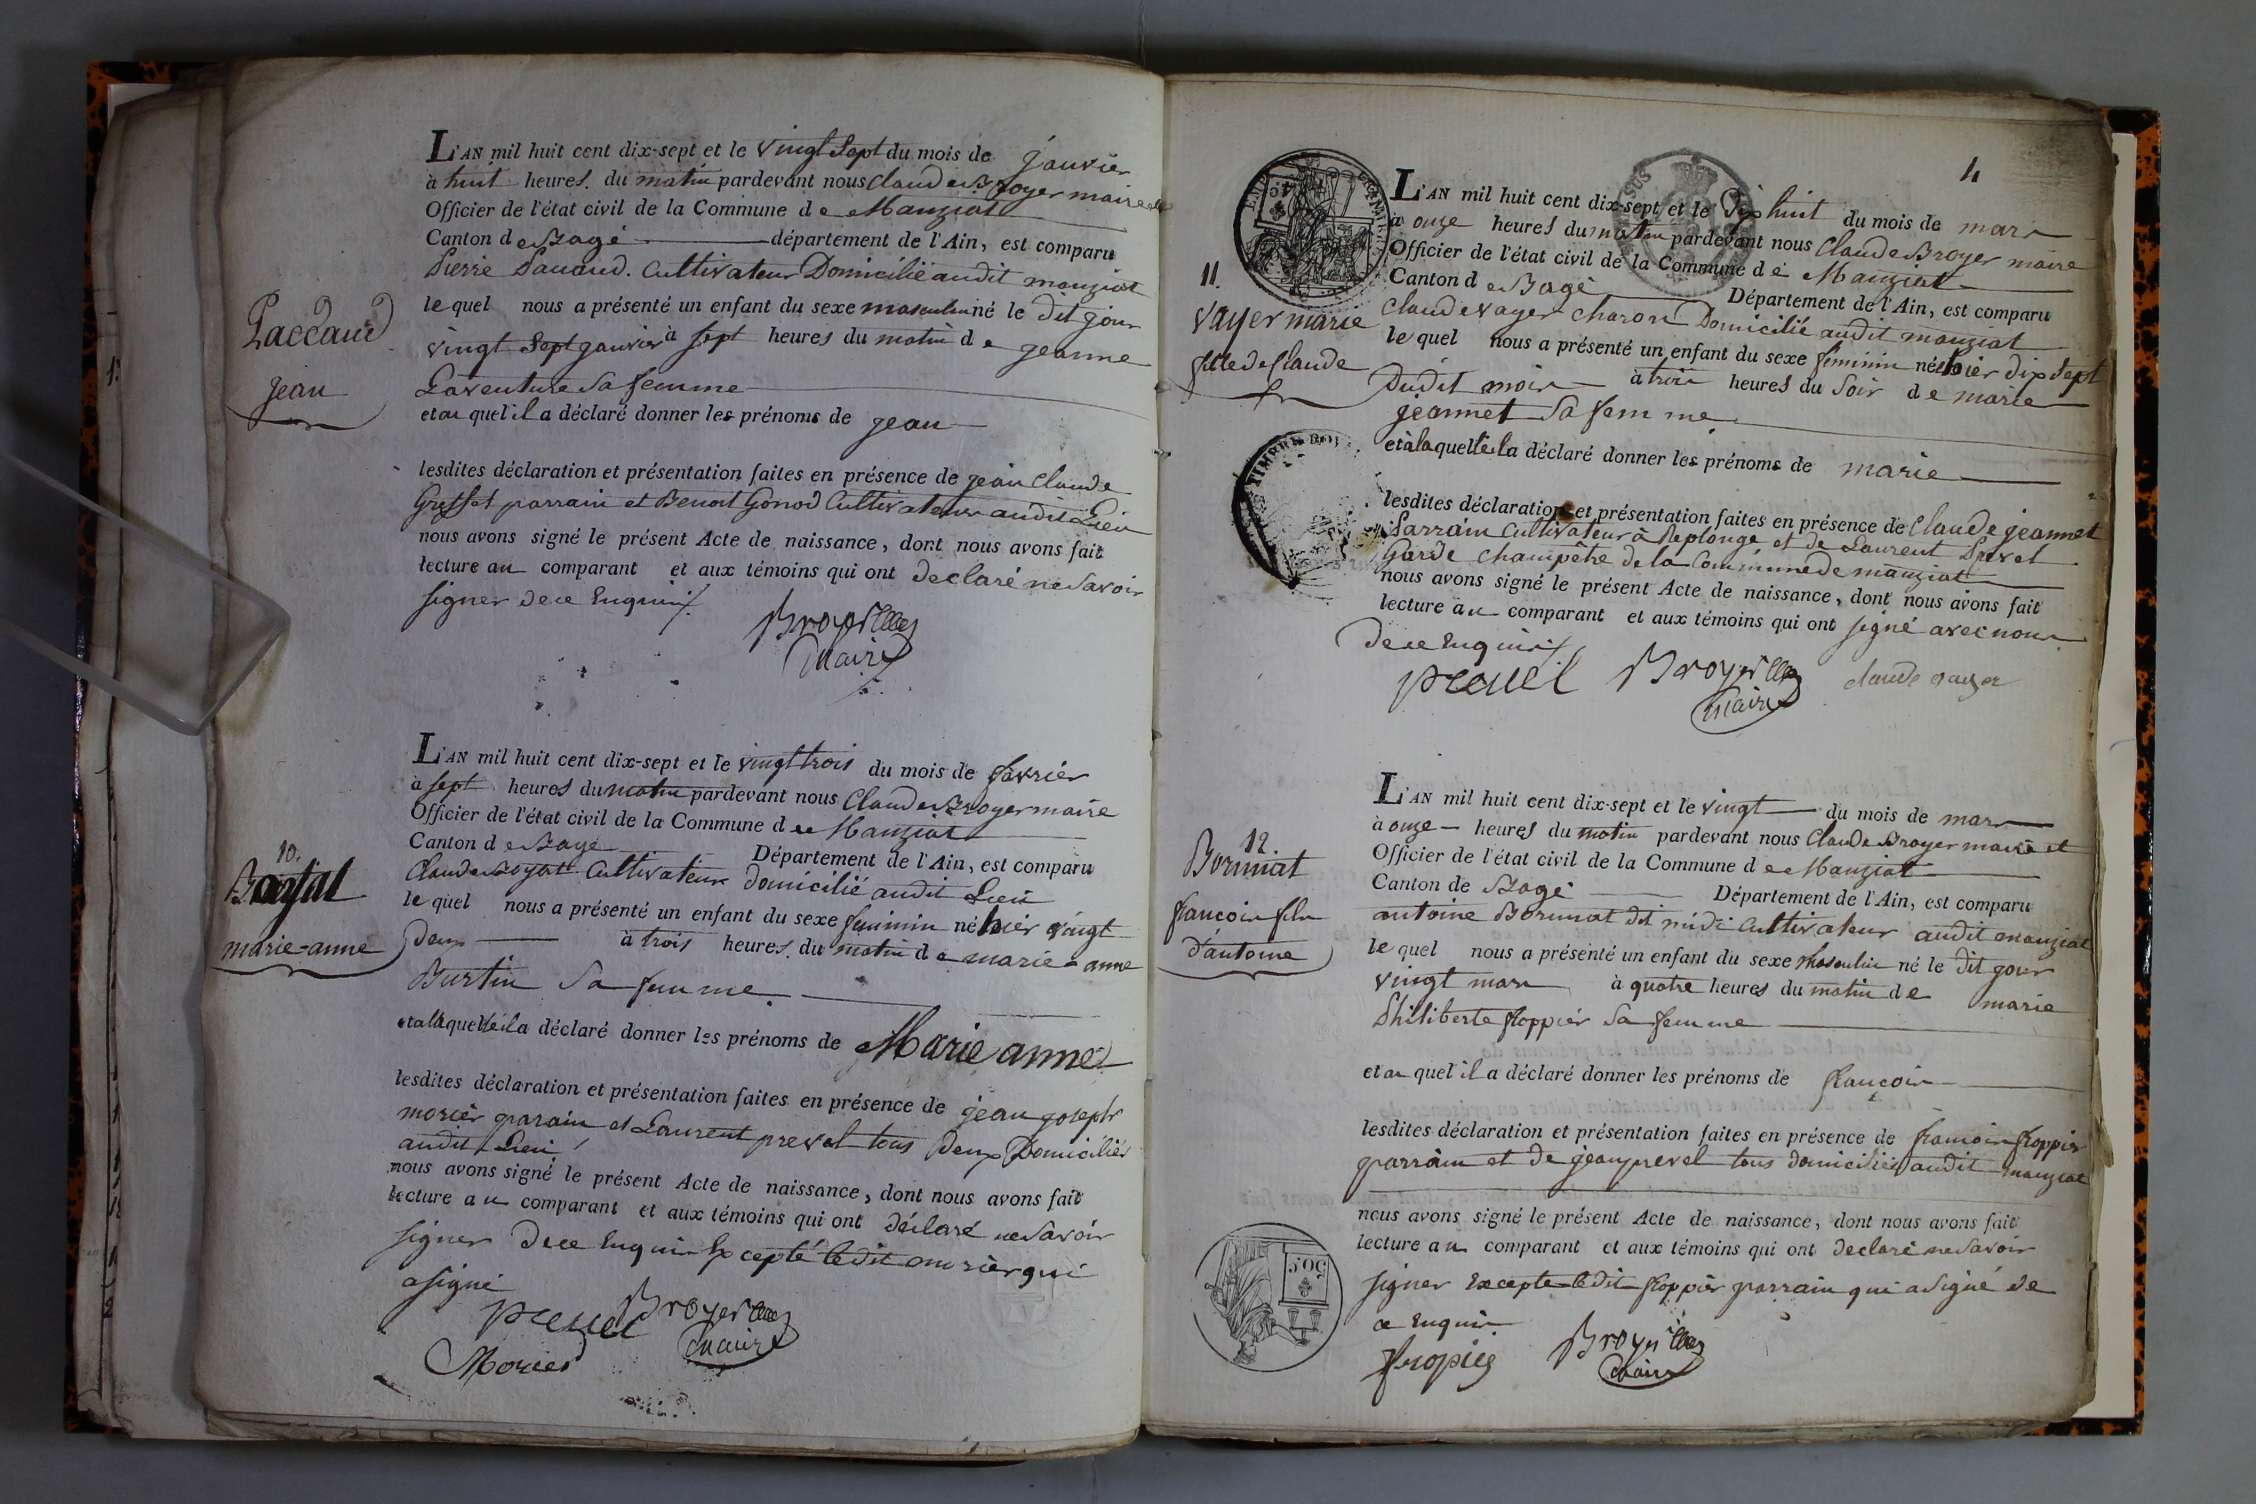 Paccaud
jean
L'AN mil huit cent dix-sept et le vingt sept du mois de janvier
à huit heures du matin pardevant nous Claude Broyer maire et
Officier de l'état civil de la Commune de Manziat
Canton de Bagé département de l'Ain, est comparu
Pierre Pacaud Cultivateur Domicilié audit manziat
le quel nous a présenté un enfant du sexe masculin né le dit jour
vingt Sept janvier à sept heures du matin de jeanne
Laventure Sa femme
et au quel il a déclaré donner les prénoms de jean
lesdites déclaration et présentation faites en présence de jean Claude
parrain et Benoit Gonod Cultivateurs audit Lieu
nous avons signé le présent Acte de naissance, dont nous avons fait
lecture au comparant et aux témoins qui ont declaré ne Savoir
signer de ce Enquis
Broyer
Maire
10.
marie-anne
L'AN mil huit cent dix-sept et le vingt trois du mois de favrier
à sept heures du matin pardevant nous Claude Broyer maire
Officier de l'état civil de la Commune de Manziat
Canton de Bagé Département de l'Ain, est comparu
Claude Boyat Cultivateur domicilié audit Lieu
le quel nous a présenté un enfant du sexe feminin né hier vingt
deux à trois heures du matin de marie-anne
Burtin Sa femme
et a laquelle il a déclaré donner les prénoms de Marie anne
lesdites déclaration et présentation faites en présence de jean joseph
morier parain et Laurent prevel tous Deux Domiciliés
audit Lieu
nous avons signé le présent Acte de naissance, dont nous avons fait
lecture au comparant et aux témoins qui ont déclaré ne Savoir
signer de ce Enquis Excepté le dit morier qui
a signé
prevel Broyer
Maire
Morier
4
11.
vayer marie
fille de Claude
L'AN mil huit cent dix-sept et le Dix huit du mois de mars
à onze heures du matin pardevant nous Claude Broyer maire
Officier de l'état civil de la Commune de Manziat
Canton de Bagé Département de l'Ain, est comparu
Claude vayer charon Domicilié audit manziat
le quel nous a présenté un enfant du sexe feminin née hier dix Sept
Dudit mois à trois heures du Soir de marie
jeannet Sa femme
et à la quelle il a déclaré donner les prénoms de marie
lesdites déclaration et présentation faites en présence de Claude jeannet
Parrain Cultivateur à Replonge et de Laurent Prevel
Garde Champetre de la Commune de manziat
nous avons signé le présent Acte de naissance, dont nous avons fait
lecture au comparant et aux témoins qui ont signé avec nous
de ce Enquis
prevel Broyer claude vayer
Maire
12
Borniat
francois fils
d'antoine
L'AN mil huit cent dix-sept et le vingt du mois de mars
à onze heures du matin pardevant nous Claude Broyer maire et
Officier de l'état civil de la Commune de Manziat
Canton de Bagé Département de l'Ain, est comparu
antoine Borniat dit midi Cultivateur audit manziat
le quel nous a présenté un enfant du sexe masculin né le dit jour
vingt mars à quatre heures du matin de marie
Philiberte froppier Sa femme
et au quel il a déclaré donner les prénoms de françois
lesdites déclaration et présentation faites en présence de francois froppier
parrain et de jean prevel tous domiciliés audit manziat
nous avons signé le présent Acte de naissance, dont nous avons fait
lecture au comparant et aux témoins qui ont declaré ne Savoir
signer Excepte le dit froppier parrain qui a Signé de
ce Enquis
50.c
fropier Broyer
Maire